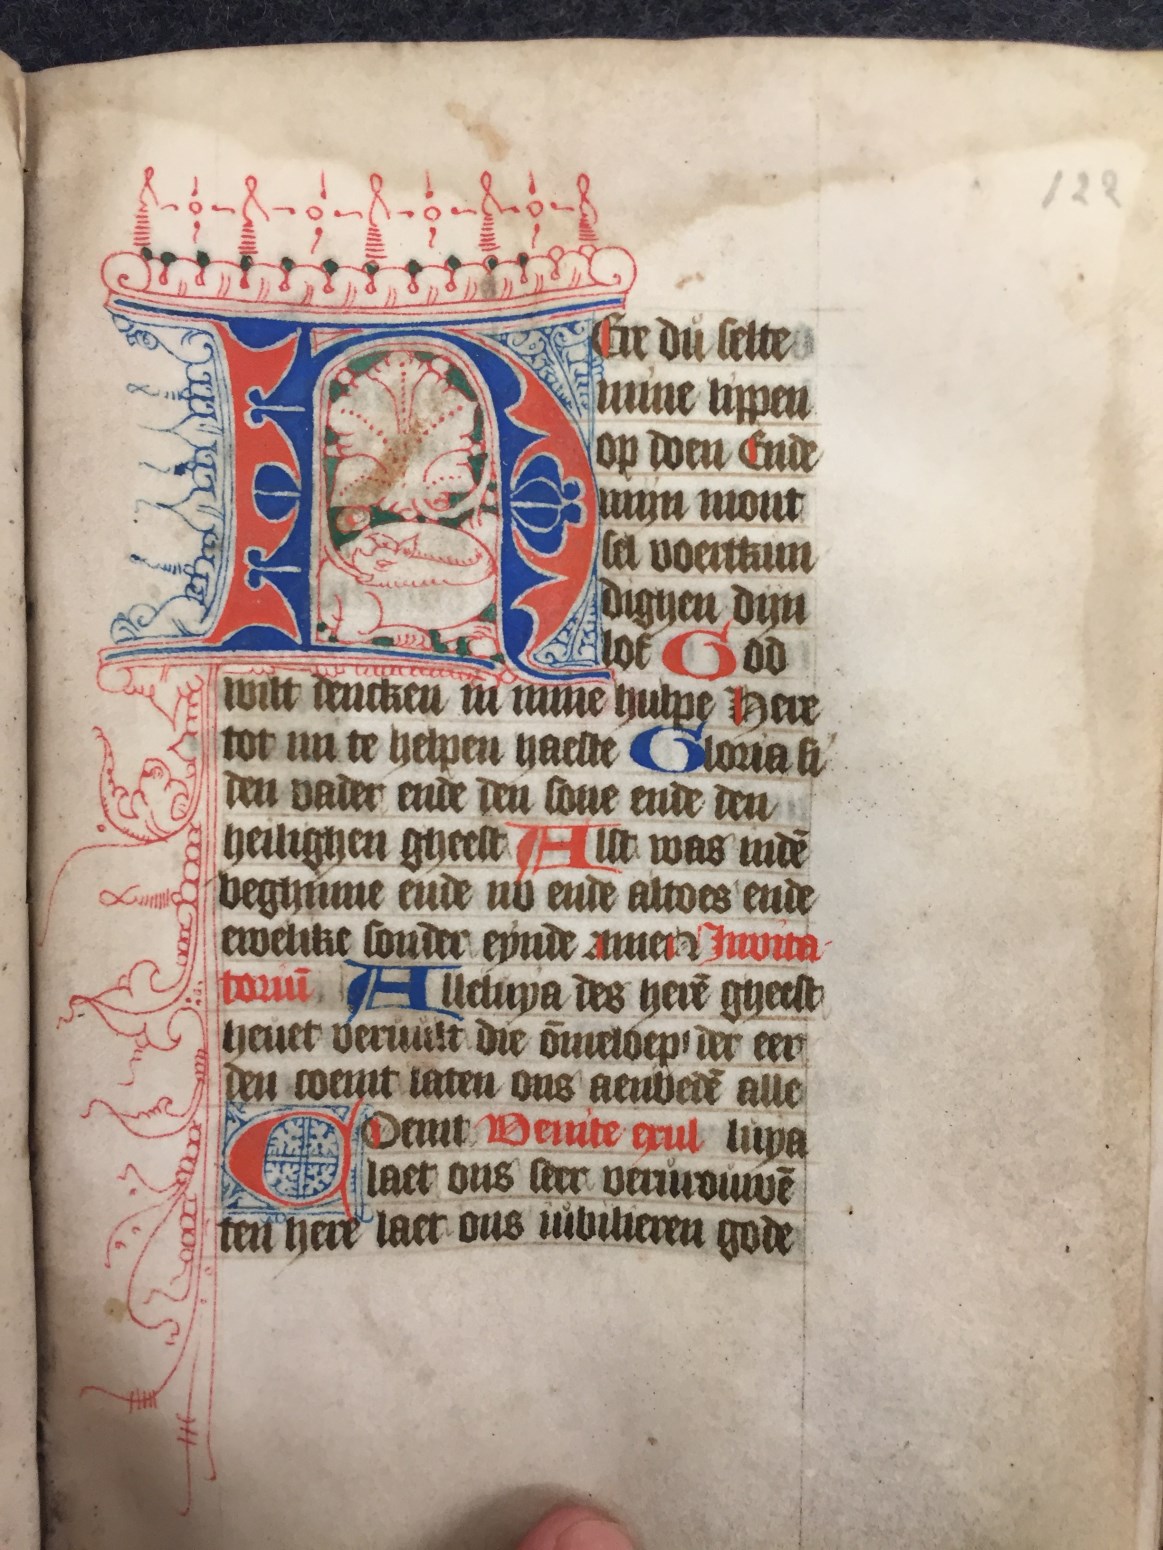 122
HEre du selte
mine lippen
op doen Ende
mijn mont
sel voertkun
dighen dijn
lof God
wilt dencken in mine hulpe Here
tot mi te helpen haeste Gloria si
den vader ende den sone ende den
heilighen gheest Alst was indē
beghinne ende nv ende altoes ende
ewelike sonder eynde Amen Invita-
toriū Alleluya des herē gheest
heuet veruult die ōmeloep der eer
den coemt laten ons aenbedē alle
COemt Venite exul luya
laet ons seer vervrouwē
ten here laet ons iubilieren gode